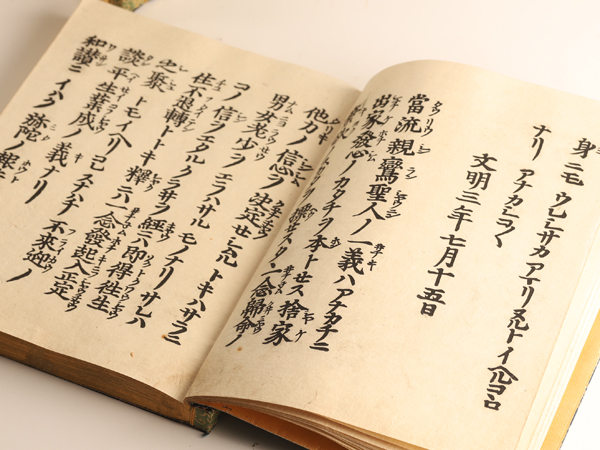 身ニモ ウレシサカ アマリヌルトイヘルコヽロ
ナリ アナカシコ〱
文明三年七月十五日
當流親鸞聖人ノ一義ハアナカチニ
出家發心ノカタチヲ本トセス捨家
ノスカタヲ標セスタヽ一念歸命ノ
他力ノ信心ヲ決定セシムル トキハサラニ
男女老少ヲ エラハサル モノナリ サレハ
コノ信ヲエタルクラヰヲ經ニハ即得往生
住不退轉トトキ 釋ニハ一念發起入正定
之聚 トモイヘリ コレスナハチ 不來迎ノ
談平生業成ノ義ナリ
和讃ニイハク 弥陀ノ報土